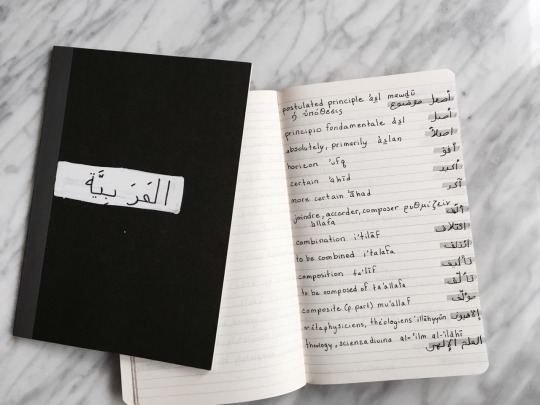 العَرَبِيَّة
postulated principle 'aṣl mawḍū أصل موضوع
ἡ ὑπόθεσις
principio fondamentale 'aṣl أصل
absolutely, primarily 'aṣlan أصلاً
horizon 'ufq أفق
certain 'akīd أكيد
more certain 'ākad آكد
joindre, accorder, composer ῥυθμίζειν ألّف
'allafa
combination i'tilāf ائتلاف
to be combined i'talafa ائتلف
composition ta'līf تأليف
to be composed of ta'allafa تألّف
composite (p. part) mu'allaf مؤلّف
métaphysiciens, théologiens 'ilāhiyyūn الإلهيون
theology, scienza divina al-'ilm al-'ilāhī
العلم الإلهي